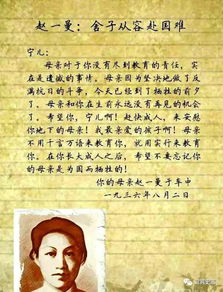 赵一曼：舍子从容赴国难
宁儿：
母亲对于你没有尽到教育的责任，实
在是遗憾的事情。母亲因为坚决地做了反
满抗日的斗争，今天已经到了牺牲的前夕
了。母亲和你在生前永远没有再见的机会
了。希望你，宁儿啊！赶快成人，来安慰
你地下的母亲！我最亲爱的孩子啊！母亲
不用千言万语来教育你，就用实行来教育
你。在你长大成人之后，希望不要忘记你
的母亲是为国而牺牲的！
你的母亲赵一曼于车中
一九三六年八月二日